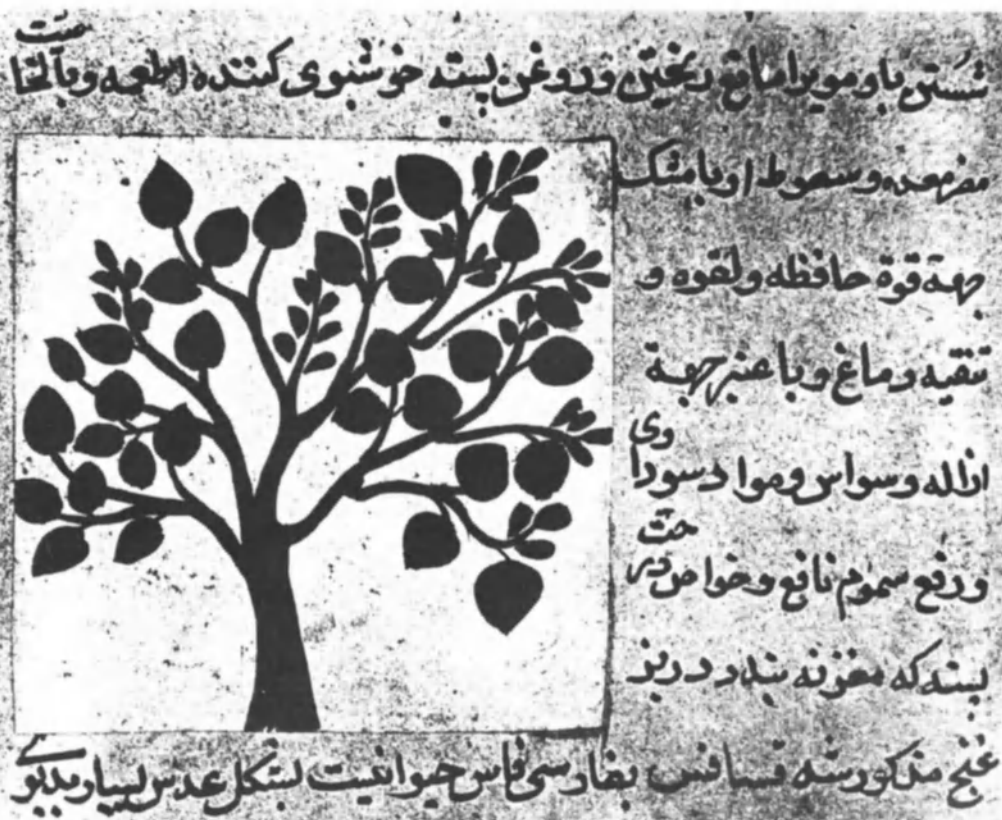 شستن باو مویرا مانع ریختن و روغن پسته خوشبوی کننده اطعمه و بالخاصیت
مضر معده و سعوط او با مشک
جهة قوة حافظه و لقوه و
تنقیه دماغ و با عنبر جهة
ازاله وسواس و مواد سوداوی
و رفع سموم نافع و خواص درخت
پسته که مغز نه بندد در بز
غنج مذکور شد فسافس بفارسی فاس حیوانیست بشکل عدس بسیار بدبوی